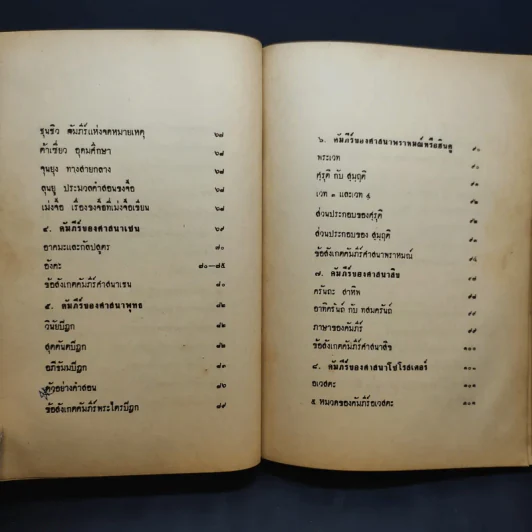 ชุนชิว คัมภีร์แห่งจดหมายเหตุ ๖๗
ต้าเซี่ยว อุดมศึกษา ๖๘
จุนยุง ทางสายกลาง ๖๘
ลุนยู ประมวลคำสอนขงจื๊อ ๖๘
เม่งจื๊อ เรื่องขงจื๊อที่เม่งจื๊อเขียน ๖๘
๔. คัมภีร์ของศาสนาเชน ๖๙
อาคมะและกัลปสูตร ๗๐
อังคะ ๗๐—๗๕
ข้อสังเกตคัมภีร์ศาสนาเชน ๘๐
๕. คัมภีร์ของศาสนาพุทธ ๘๒
วินัยปิฎก ๘๒
สุตตันตปิฎก ๘๒
อภิธัมมปิฎก ๘๓
ตัวอย่างคำสอน ๘๖
ข้อสังเกตคัมภีร์พระไตรปิฎก ๘๙
๖. คัมภีร์ของศาสนาพราหมณ์หรือฮินดู ๙๐
พระเวท ๙๐
ศรุติ กับ สมฤติ ๙๑
เวท ๓ และเวท ๔
ส่วนประกอบของศรุติ ๙๒
ส่วนประกอบของ สมฤติ ๙๒
ข้อสังเกตคัมภีร์ศาสนาพราหมณ์
๗. คัมภีร์ของศาสนาสิข
ครันถะ สาหิพ
อาทิครันถ์ กับ ทสมครันถ์
ภาษาของคัมภีร์
ข้อสังเกตคัมภีร์ศาสนาสิข ๑๐๑
๘. คัมภีร์ของศาสนาโซโรสเตอร์ ๑๐๑
อเวสตะ
๕ หมวดของคัมภีร์อเวสตะ ๑๐๑